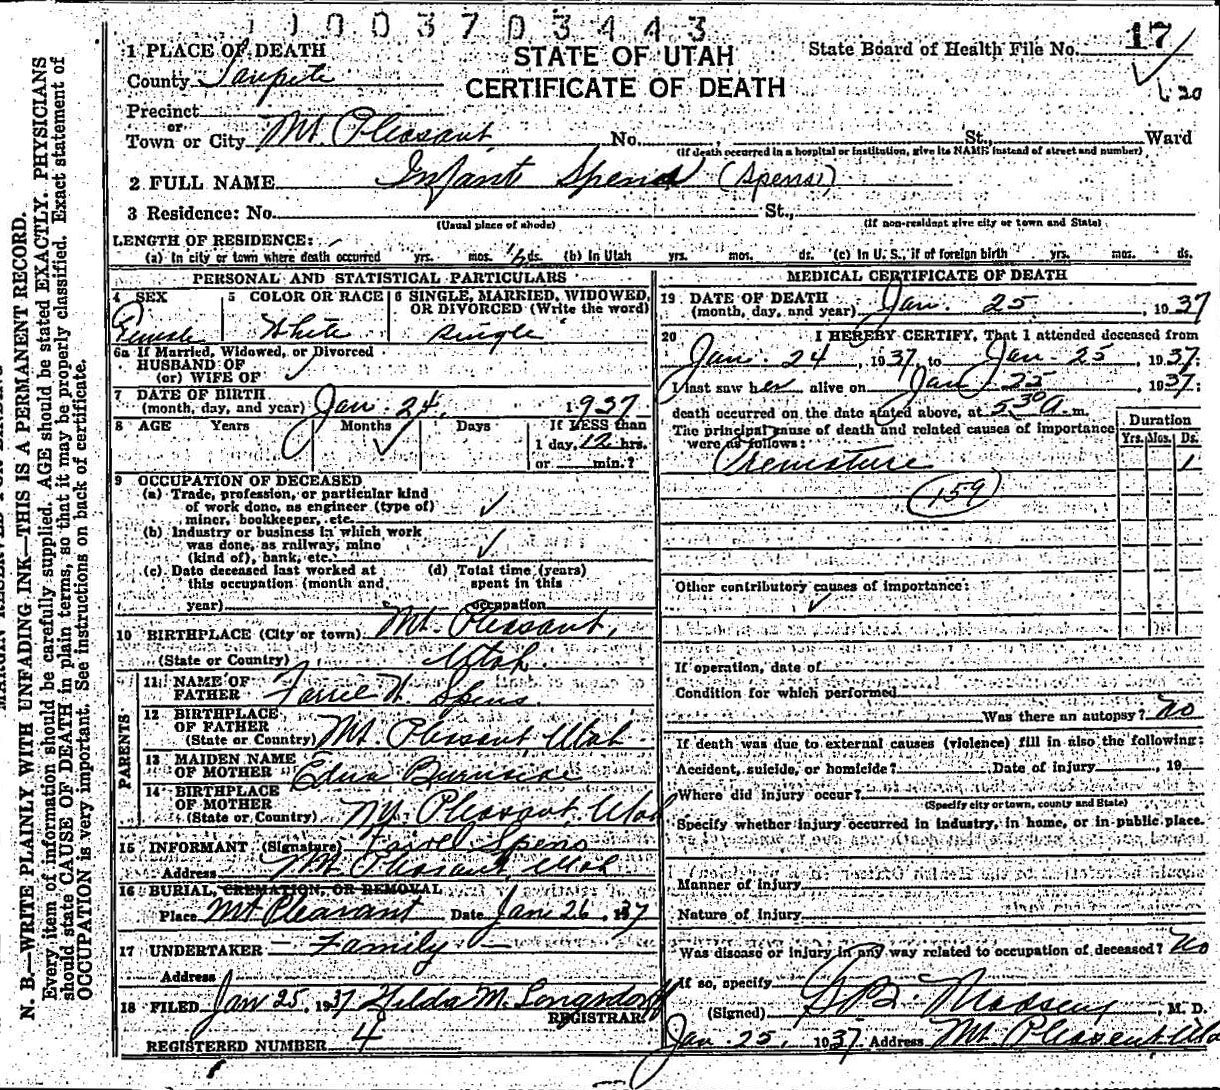 1 1 0 0 3 7 0 3 4 4 3
STATE OF UTAH
CERTIFICATE OF DEATH
State Board of Health File No. 17
20
1 PLACE OF DEATH
County Sanpete
Precinct
or
Town or City Mt. Pleasant No. St., Ward
(If death occurred in a hospital or institution, give its NAME instead of street and number)
2 FULL NAME Infant Spens (Spens)
3 Residence: No. St.,
(Usual place of abode) (If non-resident give city or town and State)
LENGTH OF RESIDENCE:
(a) In city or town where death occurred yrs. mos. ds. (b) In Utah yrs. mos. ds. (c) In U. S., if of foreign birth yrs. mos. ds.
PERSONAL AND STATISTICAL PARTICULARS
4 SEX 5 COLOR OR RACE 6 SINGLE, MARRIED, WIDOWED, OR DIVORCED (Write the word)
Female White Single
6a If Married, Widowed, or Divorced
HUSBAND OF
(or) WIFE OF
7 DATE OF BIRTH
(month, day, and year) Jan. 24, 1937
8 AGE Years Months Days If LESS than
1 day, 12 hrs.
or min.?
9 OCCUPATION OF DECEASED
(a) Trade, profession, or particular kind
of work done, as engineer (type of)
miner, bookkeeper, etc.
(b) Industry or business in which work
was done, as railway, mine
(kind of), bank, etc.
(c) Date deceased last worked at
this occupation (month and
year)
(d) Total time (years)
spent in this
occupation
10 BIRTHPLACE (City or town) Mt. Pleasant,
(State or Country) Utah.
PARENTS
11 NAME OF
FATHER Farrel W. Spens
12 BIRTHPLACE
OF FATHER
(State or Country) Mt. Pleasant, Utah
13 MAIDEN NAME
OF MOTHER Edna Burnside
14 BIRTHPLACE
OF MOTHER
(State or Country) Mt. Pleasant, Utah
15 INFORMANT (Signature) Farrel Spens
Address Mt. Pleasant, Utah
16 BURIAL, CREMATION, OR REMOVAL
Place Mt Pleasant Date Jan 26, 1937
17 UNDERTAKER - Family -
Address
18 FILED Jan 25, 1937 Hilda M. Longsdorff
REGISTRAR.
REGISTERED NUMBER 4
MEDICAL CERTIFICATE OF DEATH
19 DATE OF DEATH
(month, day, and year) Jan. 25, 1937
20 I HEREBY CERTIFY, That I attended deceased from
Jan. 24, 1937, to Jan. 25 1937.
I last saw her alive on Jan. 25 1937:
death occurred on the date stated above, at 5 30 A. m.
The principal cause of death and related causes of importance
were as follows:
Duration
Yrs. Mos. Ds.
Premature 1
(159)
Other contributory causes of importance:
If operation, date of
Condition for which performed
Was there an autopsy? No
If death was due to external causes (violence) fill in also the following:
Accident, suicide, or homicide? Date of injury , 19
Where did injury occur?
(Specify city or town, county and State)
Specify whether injury occurred in industry, in home, or in public place.
Manner of injury
Nature of injury
Was disease or injury in any way related to occupation of deceased? No
If so, specify
(Signed) Madsen, M. D.
Jan. 25, 1937. Address Mt. Pleasant, Utah
N. B.—WRITE PLAINLY WITH UNFADING INK—THIS IS A PERMANENT RECORD.
Every item of information should be carefully supplied. AGE should be stated EXACTLY. PHYSICIANS
should state CAUSE OF DEATH in plain terms, so that it may be properly classified. Exact statement of
OCCUPATION is very important. See instructions on back of certificate.